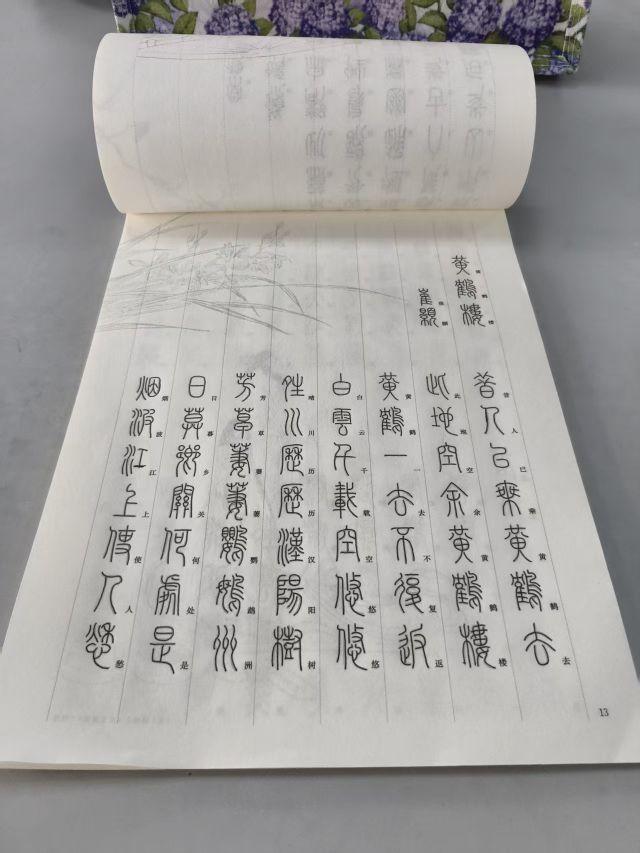 黄鶴樓
黄鹤楼
崔顥
崔颢
昔人已乘黄鶴去
昔人已乘黄鹤去
此地空余黄鶴樓
此地空余黄鹤楼
黄鶴一去不復返
黄鹤一去不复返
白雲千載空悠悠
白云千载空悠悠
晴川歷歷漢陽樹
晴川历历汉阳树
芳草萋萋鸚鵡洲
芳草萋萋鹦鹉洲
日暮鄉關何處是
日暮乡关何处是
烟波江上使人愁
烟波江上使人愁
13